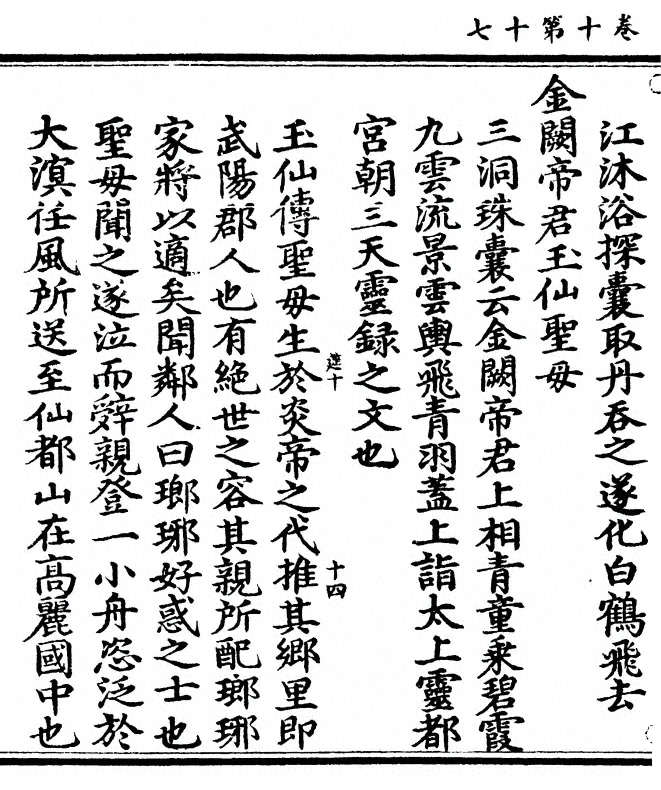 卷十第十七
江沐浴探囊取丹吞之遂化白鶴飛去
金闕帝君玉仙聖母
三洞珠囊云金闕帝君上相青童乘碧霞
九雲流景雲輿飛青羽蓋上詣太上靈都
宮朝三天靈錄之文也
筵十
十四
玉仙傳聖母生於炎帝之代推其鄉里即
武陽郡人也有絕世之容其親所配瑯琊
家將以適矣聞鄰人曰瑯琊好惑之士也
聖母聞之遂泣而辭親登一小舟恣泛於
大溟任風所送至仙都山在高麗國中也